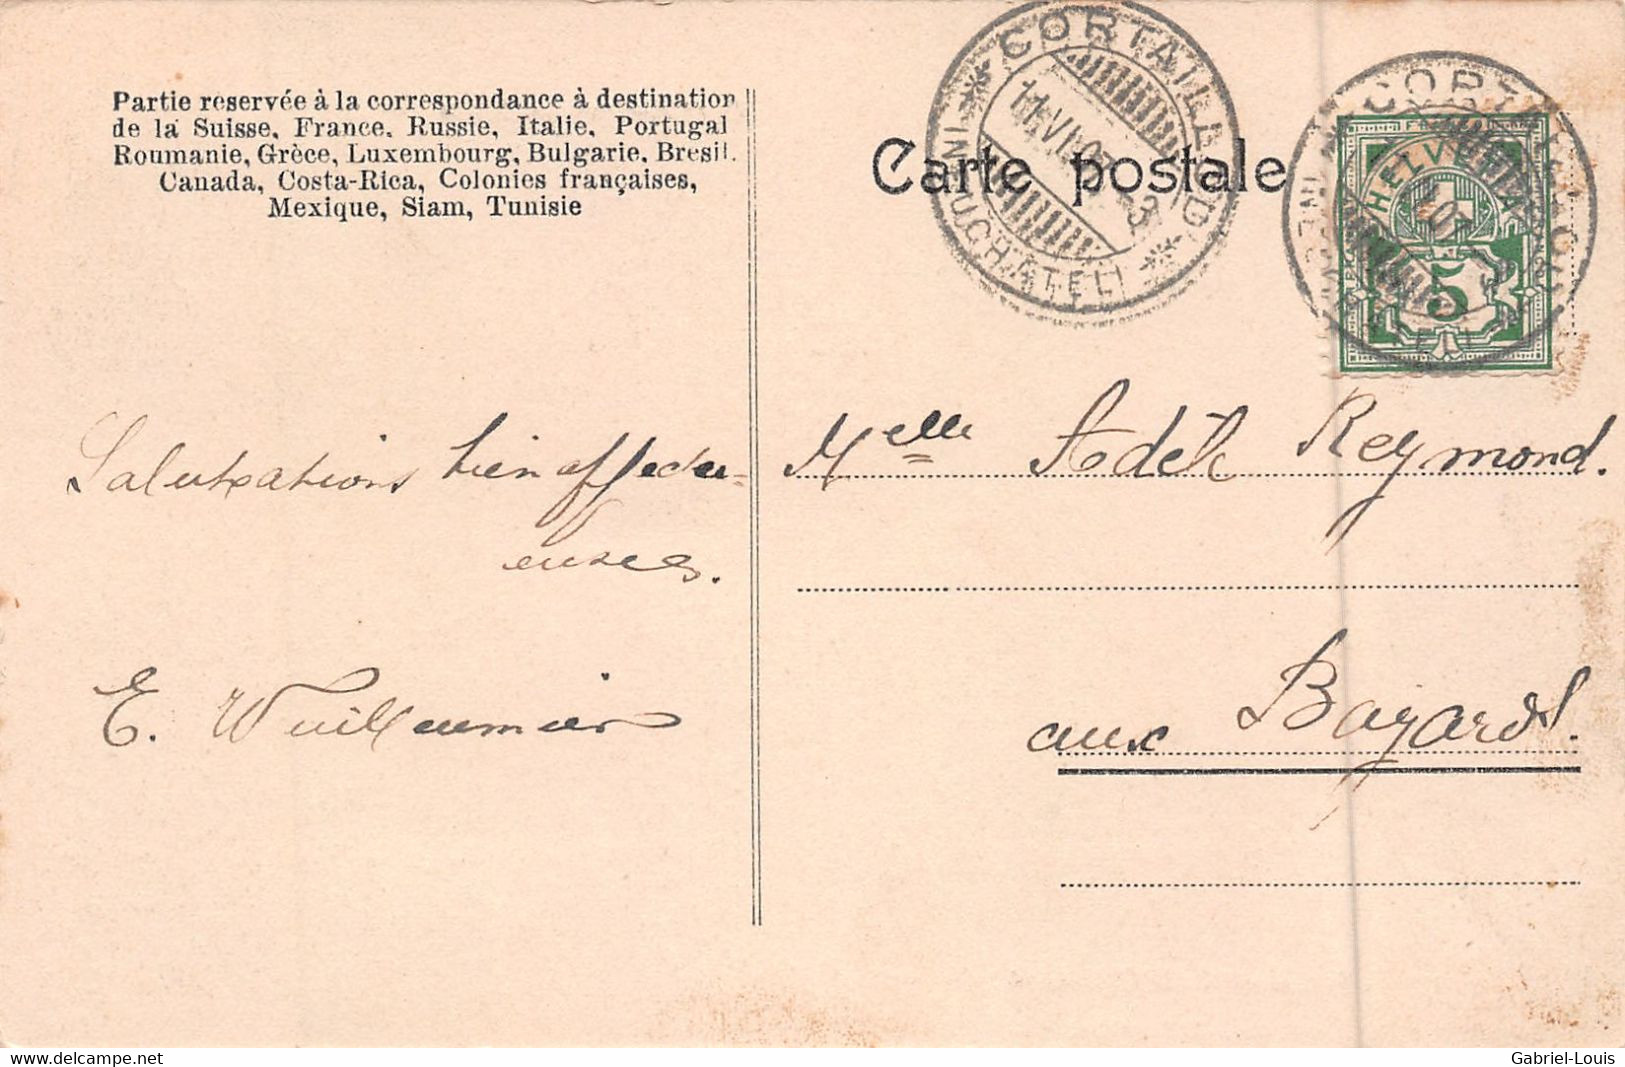 Partie reservée à la correspondance à destination
de la Suisse, France, Russie, Italie, Portugal
Roumanie, Grèce, Luxembourg, Bulgarie, Bresil.
Canada, Costa-Rica, Colonies françaises,
Mexique, Siam, Tunisie
Carte postale
CORTAILLOD
11.VI.07.-3
(NEUCHÂTEL)
CORTAILLOD
HELVETIA
5
Salutations bien affectu-
euses.
E. Wuilleumier
Melle Adèle Reymond.
aux Bayards.
delcampe.net
Gabriel-Louis